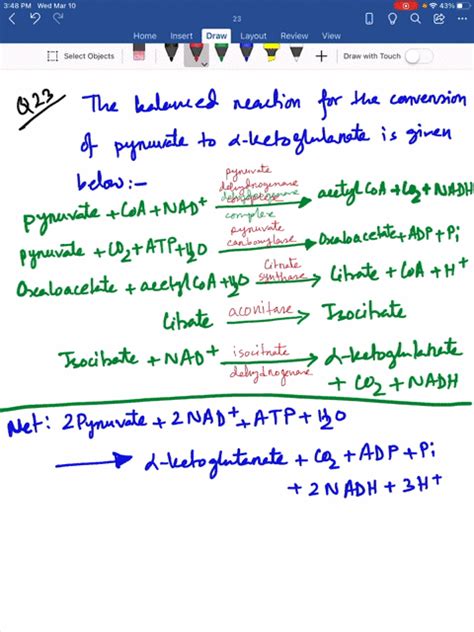 3:48 PM Wed Mar 10
43%
23
Home Insert Draw Layout Review View
Select Objects
Draw with Touch
Q23 The balanced reaction for the conversion
of pyruvate to α-ketoglutarate is given
below:-
pyruvate + CoA + NAD+ pyruvate dehydrogenase complex acetyl CoA + CO2 + NADH
pyruvate + CO2 + ATP + H2O pyruvate carboxylase Oxaloacetate + ADP + Pi
Oxaloacetate + acetyl CoA + H2O Citrate synthase Citrate + CoA + H+
Citrate aconitase Isocitrate
Isocitrate + NAD+ isocitrate dehydrogenase α-ketoglutarate
+ CO2 + NADH
Net: 2 Pyruvate + 2NAD+ + ATP + H2O
α-ketoglutarate + CO2 + ADP + Pi
+ 2NADH + 3H+